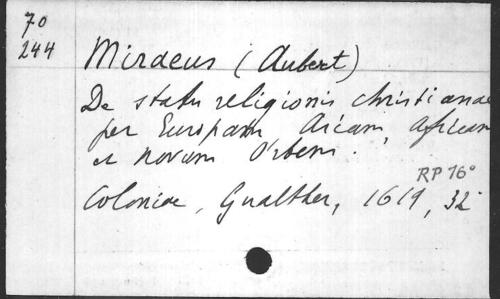 70
244
Miraeus (Aubert)
De statu religionis christianae
per Europam, Asiam, Africam
et novum Orbem.
RP 76°
Coloniae, Gualther, 1619, 32°